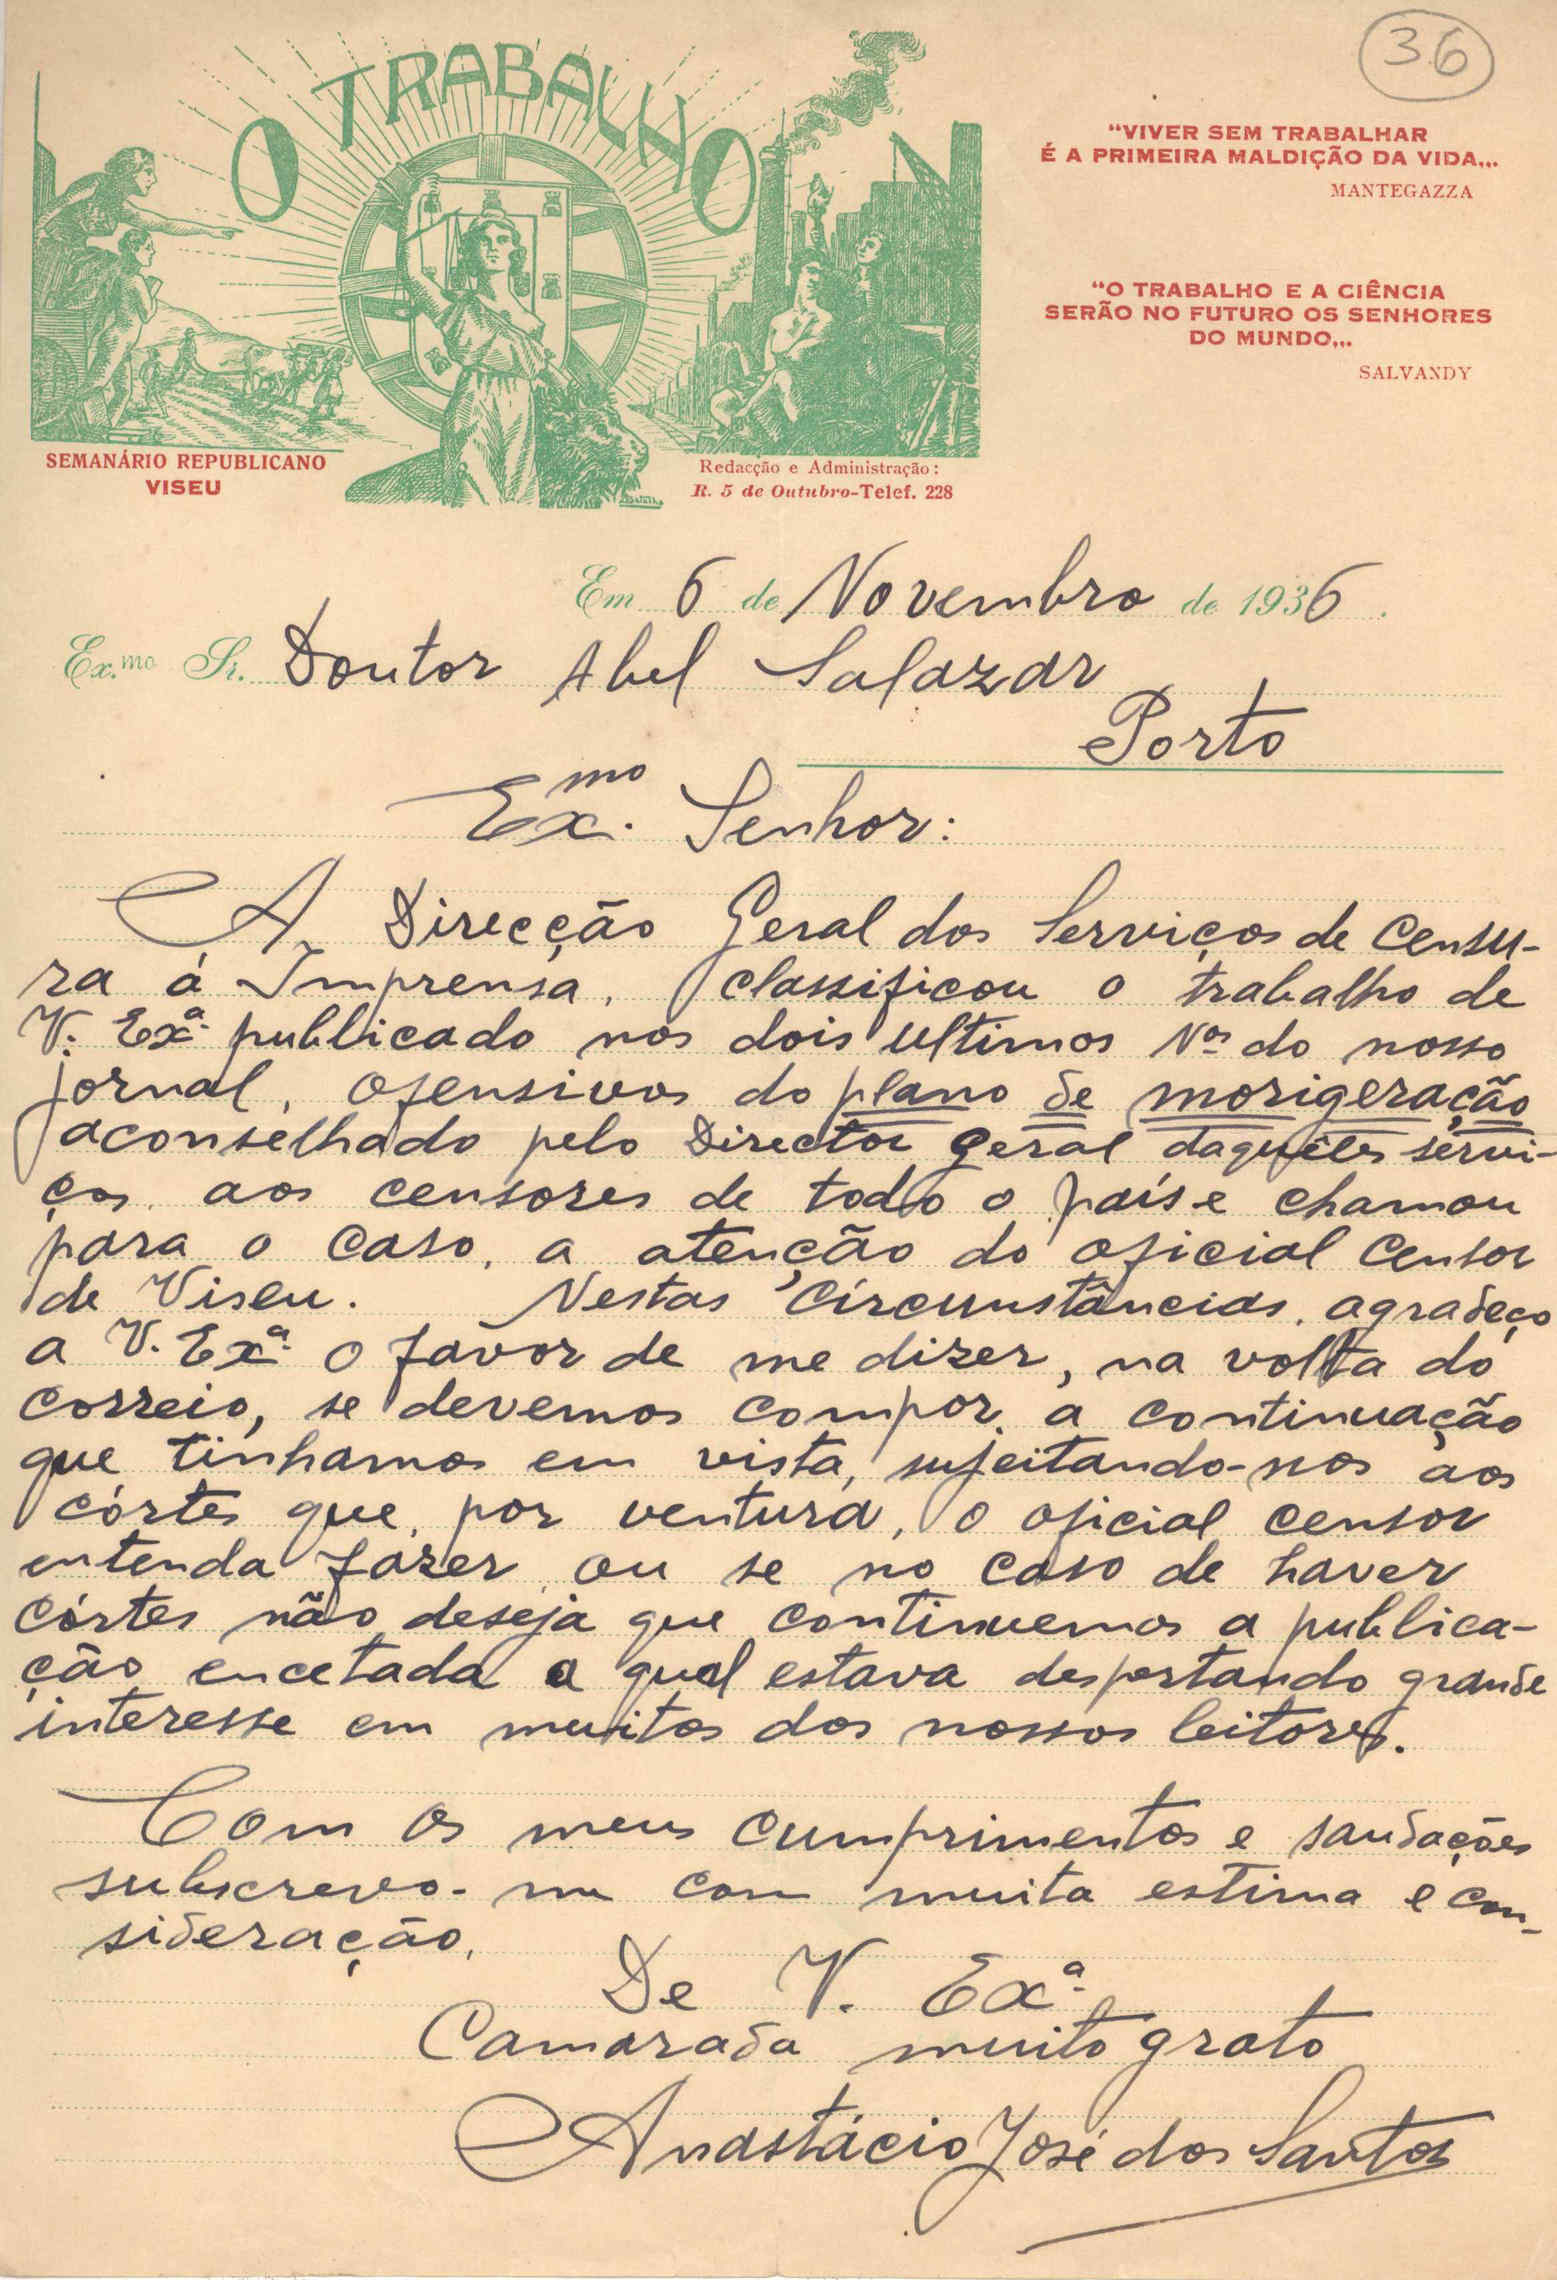 36
O TRABALHO
"VIVER SEM TRABALHAR
É A PRIMEIRA MALDIÇÃO DA VIDA,,,
MANTEGAZZA
"O TRABALHO E A CIÊNCIA
SERÃO NO FUTURO OS SENHORES
DO MUNDO,,,
SALVANDY
SEMANÁRIO REPUBLICANO
VISEU
Redacção e Administração:
R. 5 de Outubro-Telef. 228
Em 6 de Novembro de 1936.
Ex.mo Sr. Doutor Abel Salazar
Porto
Exmo. Senhor:
A Direcção Geral dos Serviços de Censu-
ra á Imprensa, classificou o trabalho de
V. Exª. publicado nos dois ultimos Nos do nosso
jornal, ofensivos do plano de morigeração
aconselhado pelo Director Geral daquêles servi-
ços, aos censores de todo o país e chamou
para o caso, a atenção do oficial censor
de Viseu. Nestas circunstâncias, agradeço
a V. Exª. o favor de me dizer, na volta do
correio, se devemos compor, a continuação
que tinhamos em vista, sujeitando-nos aos
córtes que, por ventura, o oficial censor
entenda fazer, ou se no caso de haver
córtes não deseja que continuemos a publica-
ção encetada a qual estava despertando grande
interesse em muitos dos nossos leitores.
Com os meus cumprimentos e saudações
subscrevo-me com muita estima e con-
sideração,
De V. Exª.
Camarada muito grato
Anastácio José dos Santos